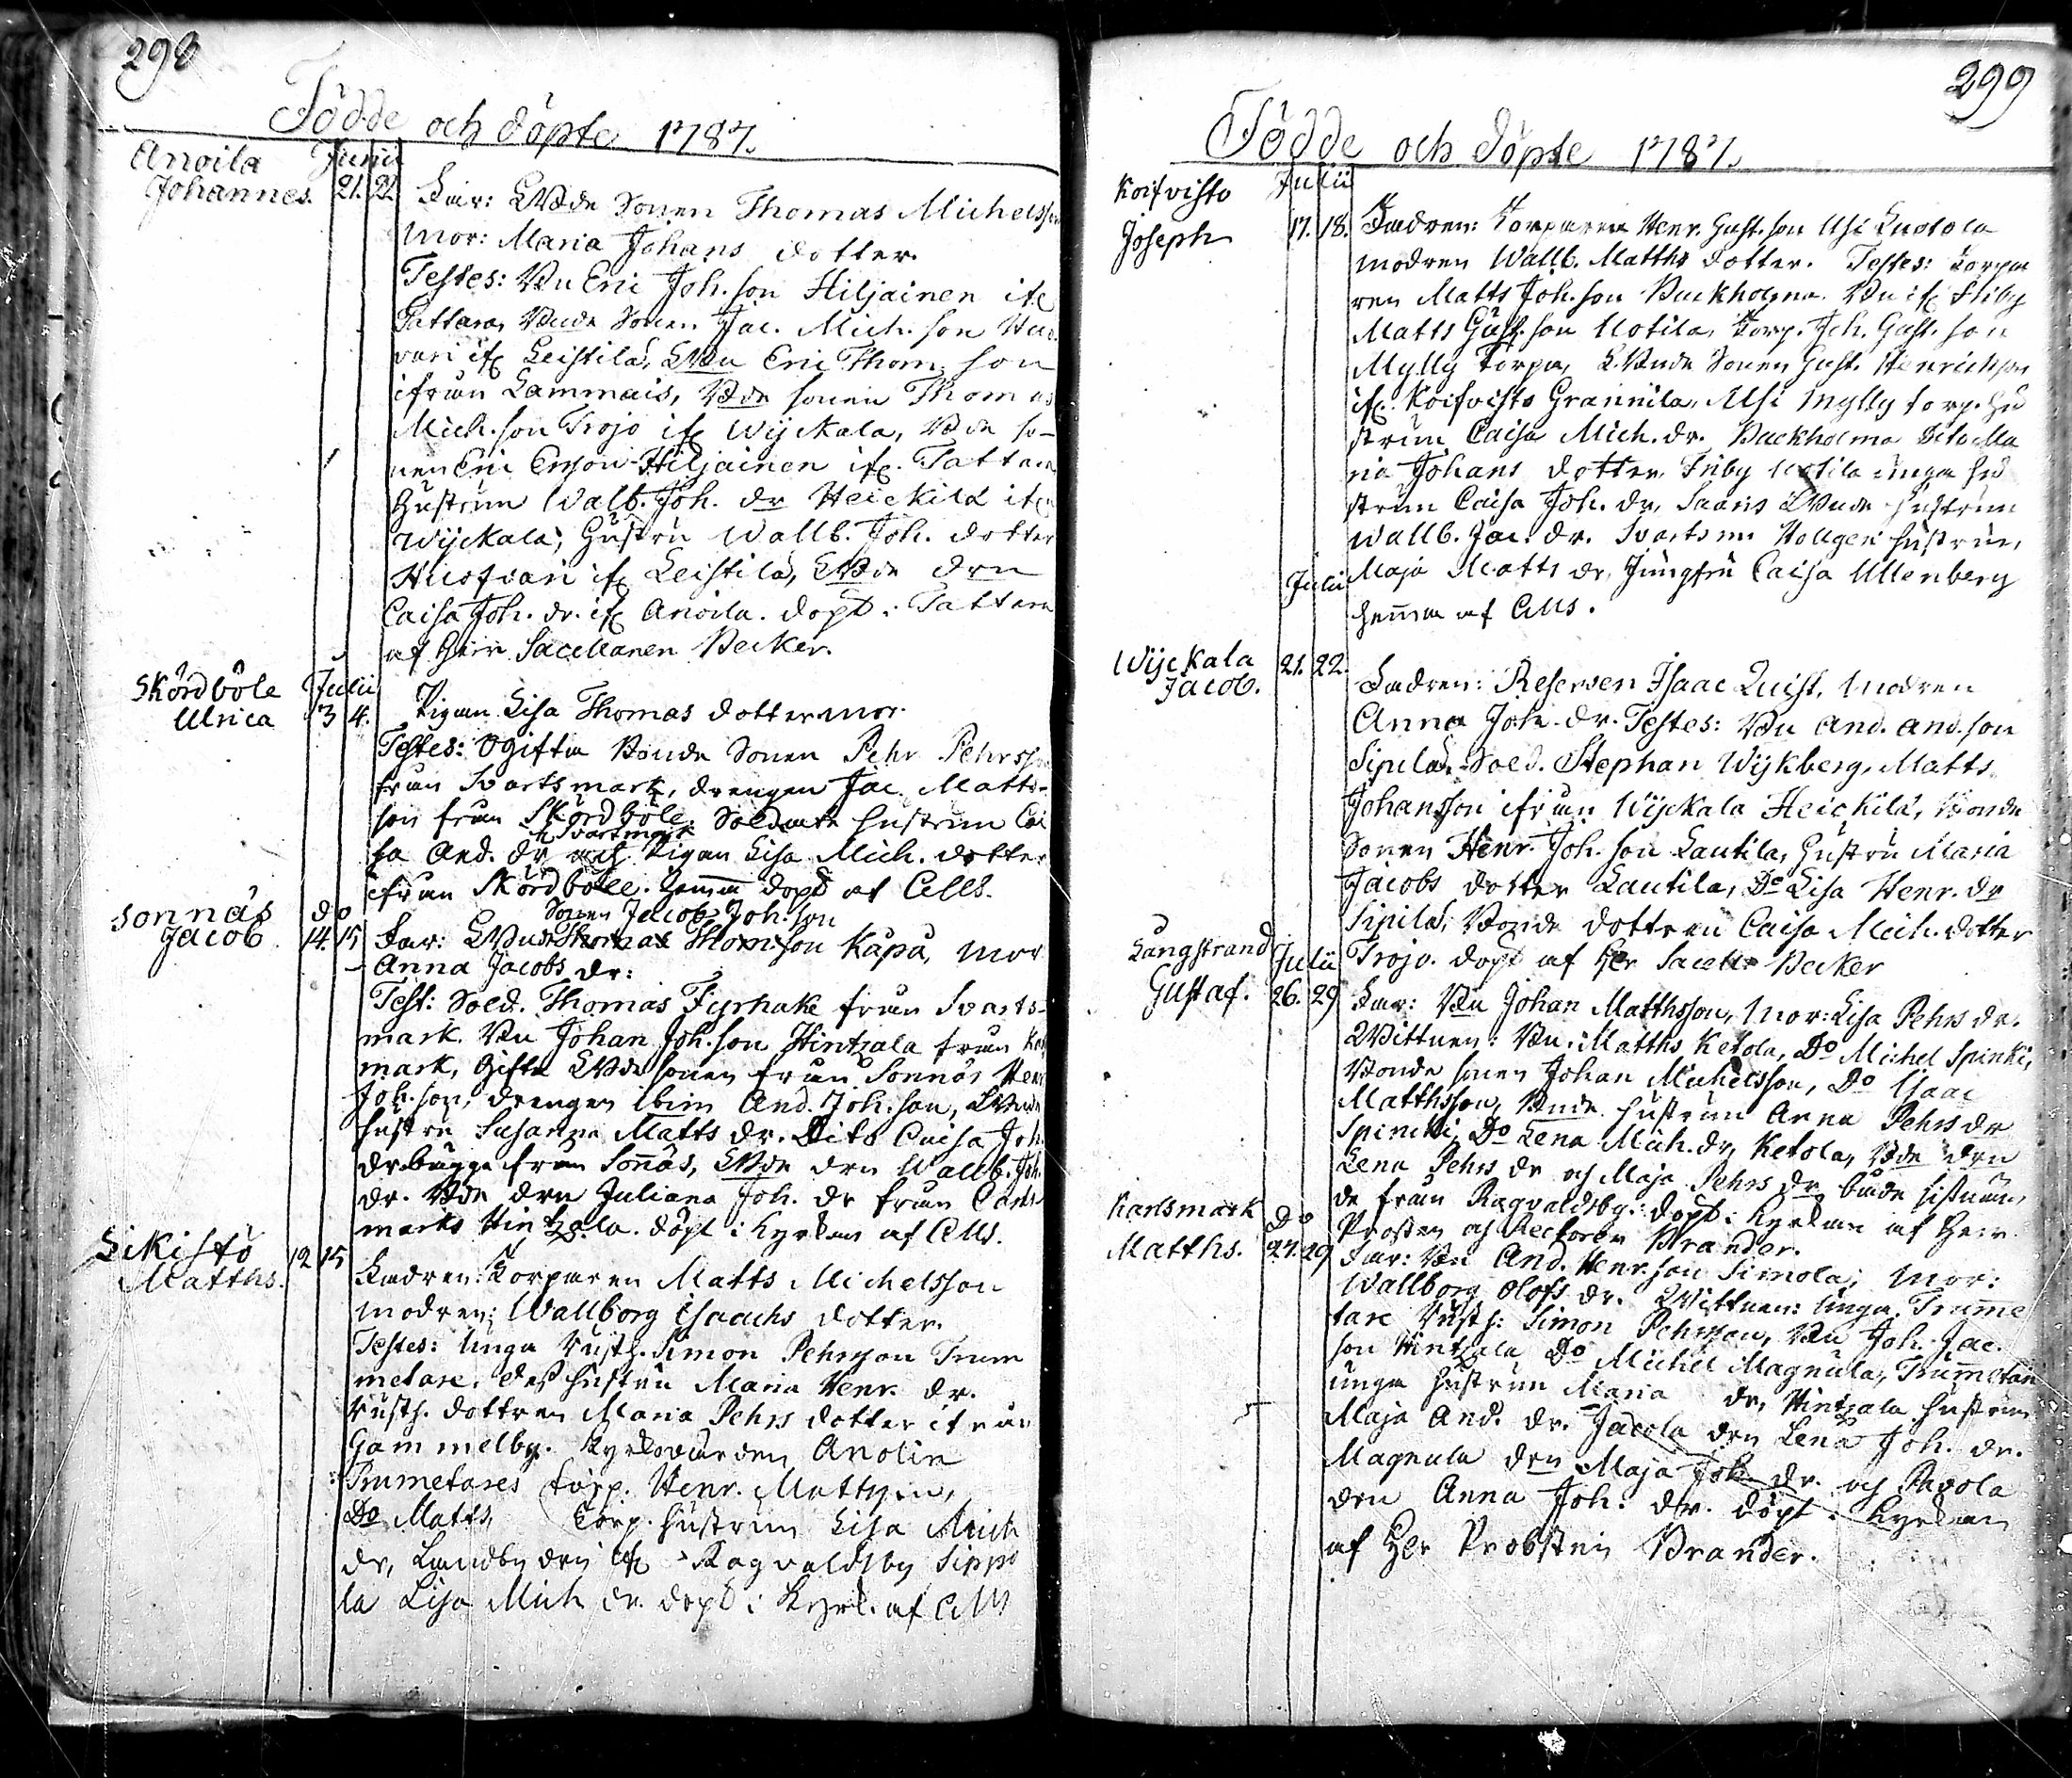 298
Födde och döpte 1787.
Anoila Junii
Johannes. 21. 22. Far: LBde Sonen Thomas Michelsson
Mor: Maria Johans dotter.
Testes: Bn Eric Joh. son Hiljainen
Tattara, Bnde Sonen Jac. Mich. son
vari Leistilä, LBn Eric Thom. son
ifrån Lammais, Bde sonen Thomas
Mich. son Trojo Wijckala, Bde so-
nen Eric Ericson Hiljainen Tattara
Hustrun Walb. Joh. dr Heickilä
Wijckala, Hustru Wallb. Joh. dotter
Leistilä, LBde drn
Caisa Joh. dr. Anoila. döpt i Tattara
af Herr Sacellanen Becker.
Skördböle Julii
Ulrica 3 4. Pigan Lisa Thomas dotter mor.
Testes: Ogifta Bonde Sonen Pehr Pehrsson
från Svartsmark, drengen Jac. Matts-
son från Skördböle. Soldate hustrun Cai
fr Svartsmark
sa And. dr och Pigan Lisa Mich. dotter
ifrån Skördböle. hemma döpt af CMS.
Sonnäs do Sonen Jacob Joh. son
Jacob. 14. 15 Far: LBnde Thomas Thom: son Käpä, Mor
Anna Jacobs dr:
Test: Sold. Thomas Fyrhake från Svarts-
mark. Bn Johan Joh. son Hintzala från
mark, Gifte LBde sonen från Sonnäs Henr
Joh. son, drengen ibm And. Joh. son, LBnde
hustru Susanna Matts dr. Dito Caisa Joh.
dr bägge från Sonnäs, LBde drn Wallb. Joh.
dr. Bde drn Juliana Joh. dr från Carls
marks Hintzala. döpt i Kyrkan af CMS.
Likistö 12 15
Matths. Fadren: Torparen Matts Michelsson
modren: Wallborg Isaachs dotter.
Testes: Unga Rusth. Simon Pehrsson Trum
metare. des hustru Maria Henr. dr.
Rusth. dottren Maria Pehrs dotter
Gammelby. Kyrkovärden Anolin
Trumetares torp. Henr. Mattson,
Do Matts, Torp. hustrun Lisa Mich
dr, Landby drn Ragvaldsby Sippo
la Lisa Mich dr. döpt i Kyrk. af CMS
299
Födde och döpte 1787.
Koifvisto Julii
Joseph 17. 18. Fadren: Torparen Henr. Gust. son Alsi Luotola
modren Wallb. Matths dotter. Testes: Torpa
ren Matts Joh. son Backholma. Bn Friby
Matts Gust. son Uotila, Torp. Joh. Gust. son
Mylly torpa, LBnde Sonen Gust. Henrichson
Koifvisto Grannila, Alsi Mylly torp. hu
strun Caisa Mich. dr. Backholma Dito Ma
ria Johans dotter, Friby Uotila unga hu
strun Caisa Joh. dr, Saaris LBnde hustrun
Wallb. Jac. dr. Svartsm. hustrun,
Julii Maja Matts dr, Jungfru Caisa Ullenberg
hemma af CMS.
Wijckala 21. 22.
Jacob. Fadren: Reserven Isaac Quist, Modren
Anna Joh. dr. Testes: Bn And. And. son
Sipilä, Sold. Stephan Wijkberg, Matts
Johansson ifrån Wijckala Heickilä, Bonde
Sonen Henr. Joh. son Lautila, Hustru Maria
Jacobs dotter Lautila, Do Lisa Henr. dr
Sipilä, Bonde dottren Caisa Mich. dotter
Trojo. döpt af Hr Sacell. Becker
Långstrand Julii
Gustaf. 26. 29 Far: Bn Johan Matthsson, Mor: Lisa Pehrs dr.
Wittnen: Bn. Matths Ketola, Do Michel Spinki,
Bonde sonen Johan Michelsson, Do Isaac
Matthsson, Bnde hustrun Anna Pehrs dr
Spincki, Do Lena Mich. dr, Ketola, Bde drn
Lena Pehrs dr och Maja Pehrs dr både
de från Ragvaldsby. döpt i Kyrkan af Herr
Prosten och Rectoren Brander.
Karlsmark do
Matths. 27. 29 Far: Bn And. Henr. son Simola; Mor:
Wallborg Olofs dr. Wittnen: Unga Trumme
tare Rusth: Simon Pehrsson, Bn Joh. Jac.
son Hintzala Do Michel Magnula, Trumetare
unga hustrun Maria dr, Hintzala hustrun
Maja And. dr. Jacola drn Lena Joh. dr.
Magnula drn Maja Joh. dr. och
drn Anna Joh. dr. döpt i Kyrkan
af Hr Probsten Brander.